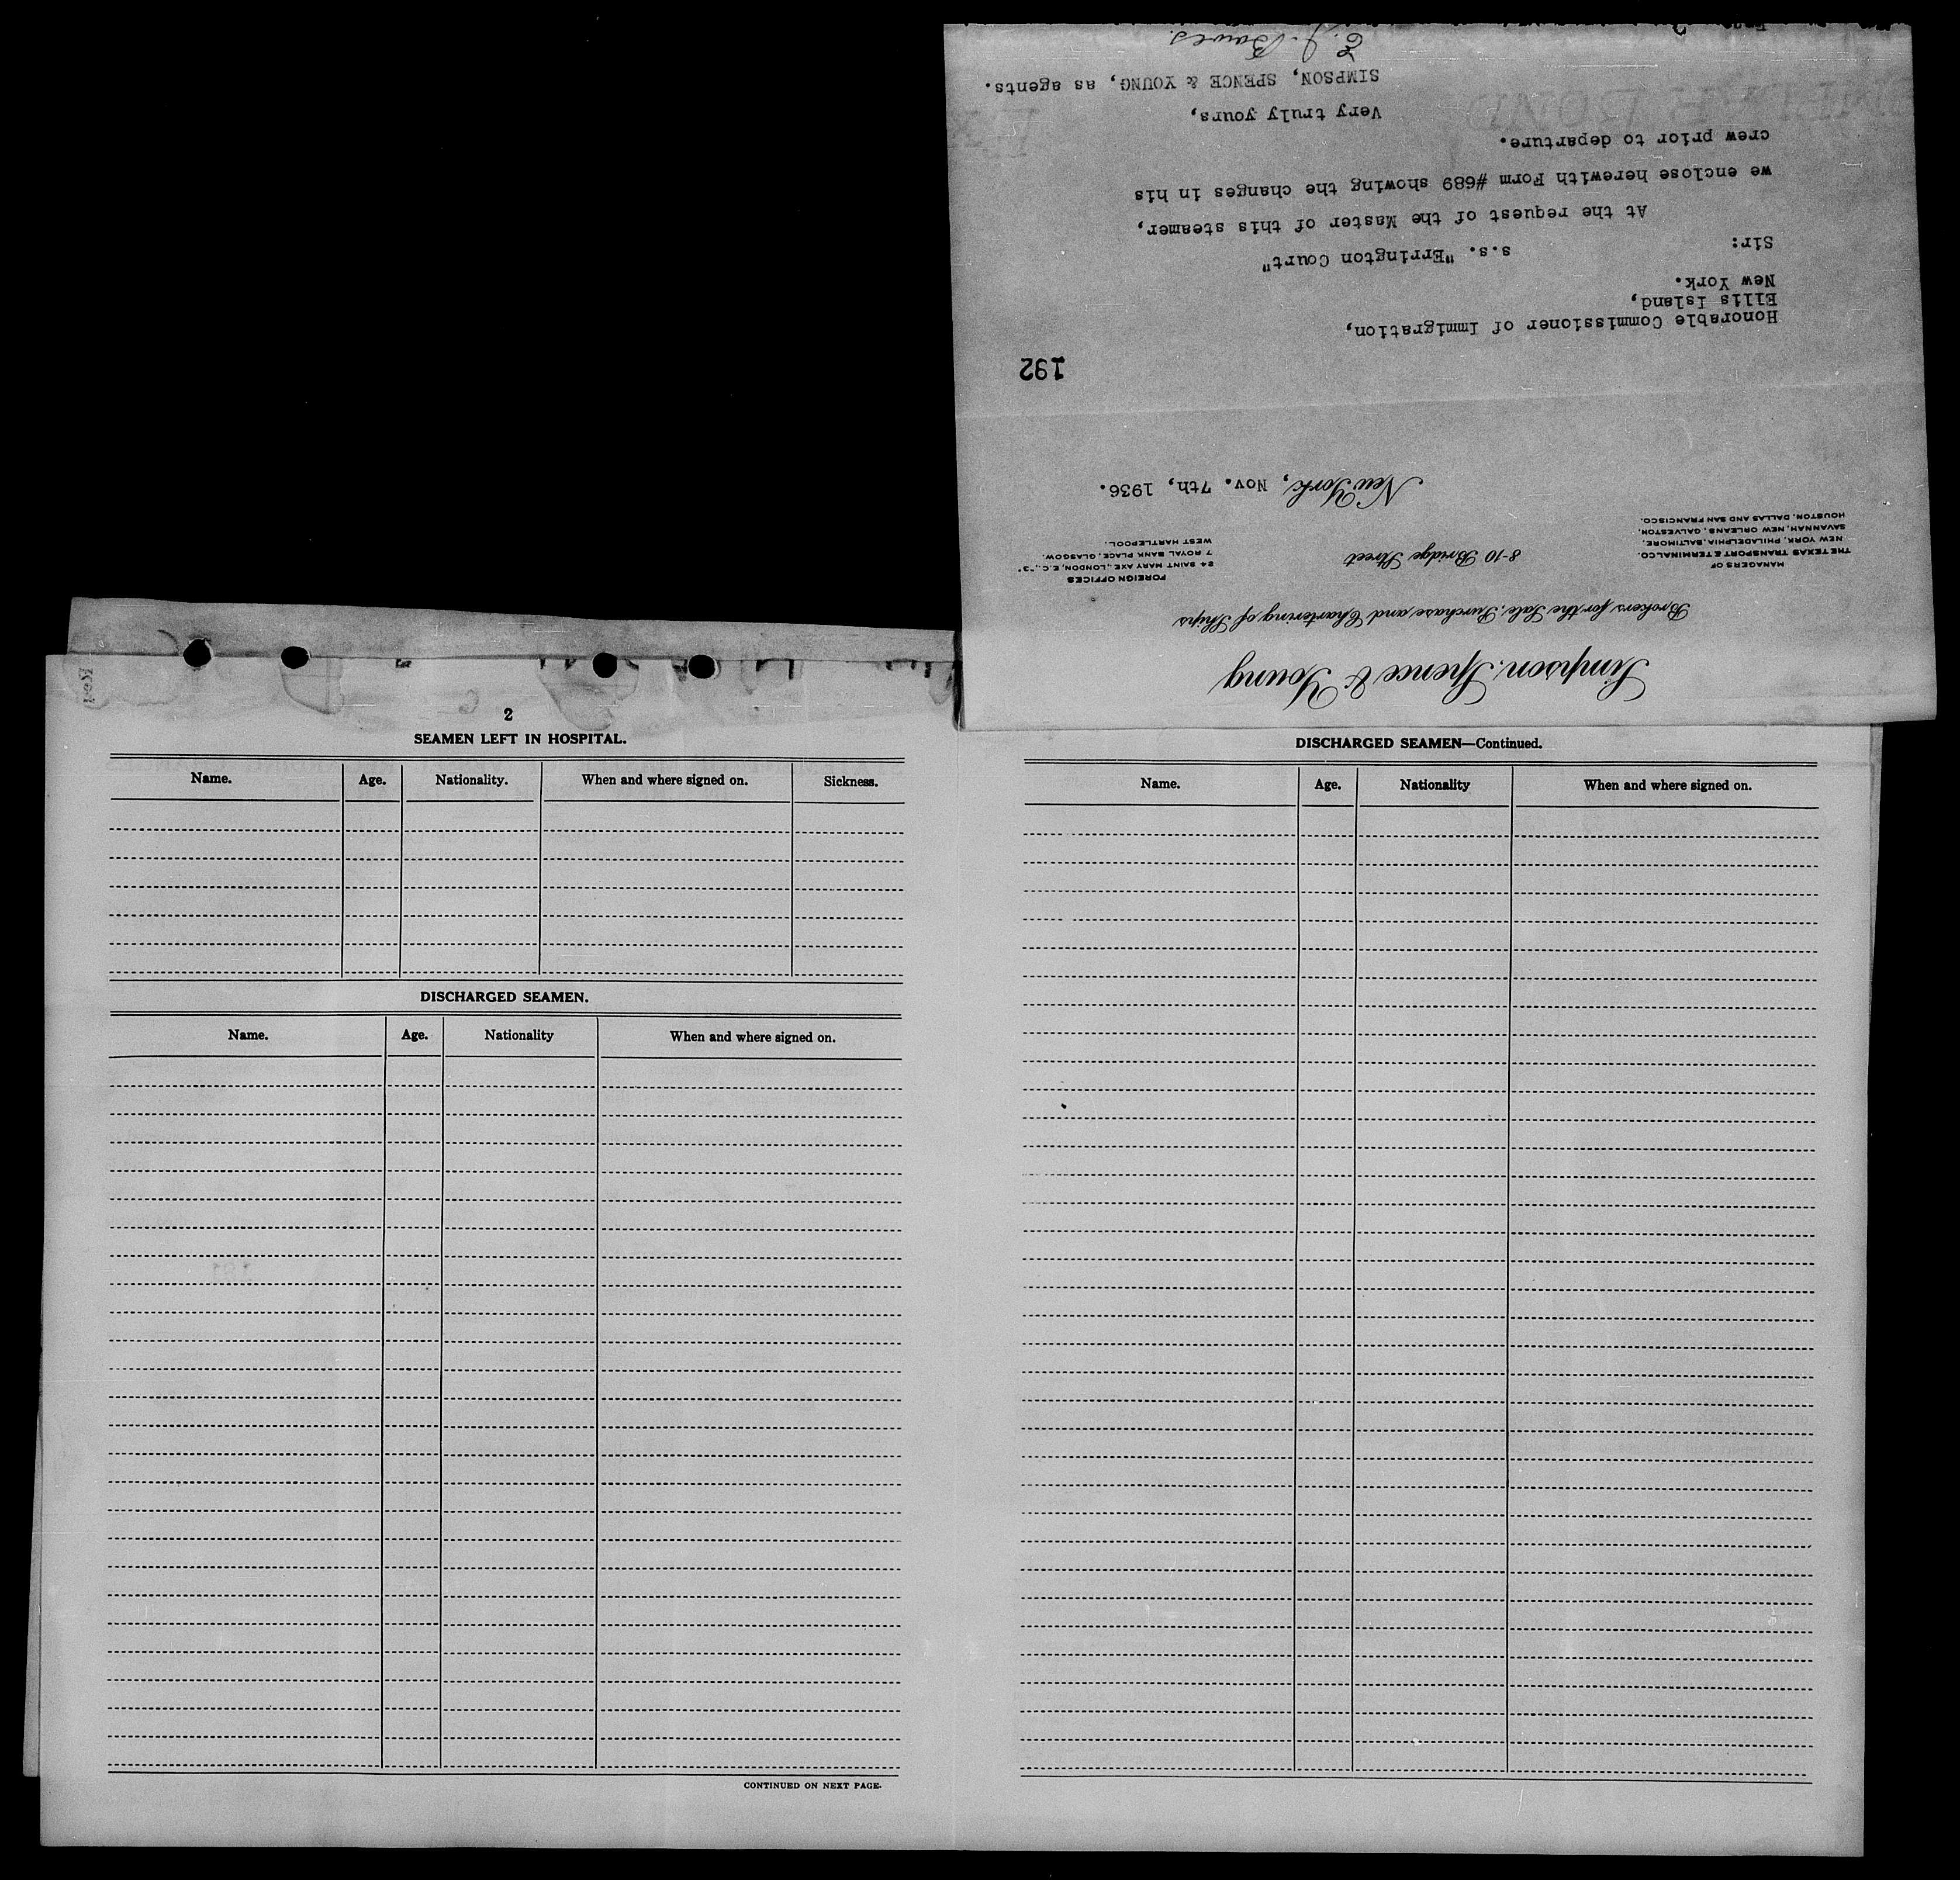 Simpson, Spence & Young
Brokers for the Sale, Purchase and Chartering of Ships
MANAGERS OF
THE TEXAS TRANSPORT & TERMINAL CO.
NEW YORK, PHILADELPHIA, BALTIMORE,
SAVANNAH, NEW ORLEANS, GALVESTON,
HOUSTON, DALLAS AND SAN FRANCISCO.
8-10 Bridge Street
FOREIGN OFFICES
24 SAINT MARY AXE, LONDON, E.C., "3"
7 ROYAL BANK PLACE, GLASGOW.
WEST HARTLEPOOL.
New York, Nov. 7th, 1936.
192
Honorable Commissioner of Immigration,
Ellis Island,
New York.
s.s. "Errington Court"
Sir:
At the request of the Master of this steamer,
we enclose herewith Form #689 showing the changes in his
crew prior to departure.
Very truly yours,
SIMPSON, SPENCE & YOUNG, as agents.
2
SEAMEN LEFT IN HOSPITAL.
Name. Age. Nationality. When and where signed on. Sickness.
DISCHARGED SEAMEN.
Name. Age. Nationality When and where signed on.
CONTINUED ON NEXT PAGE.
DISCHARGED SEAMEN—Continued.
Name. Age. Nationality When and where signed on.